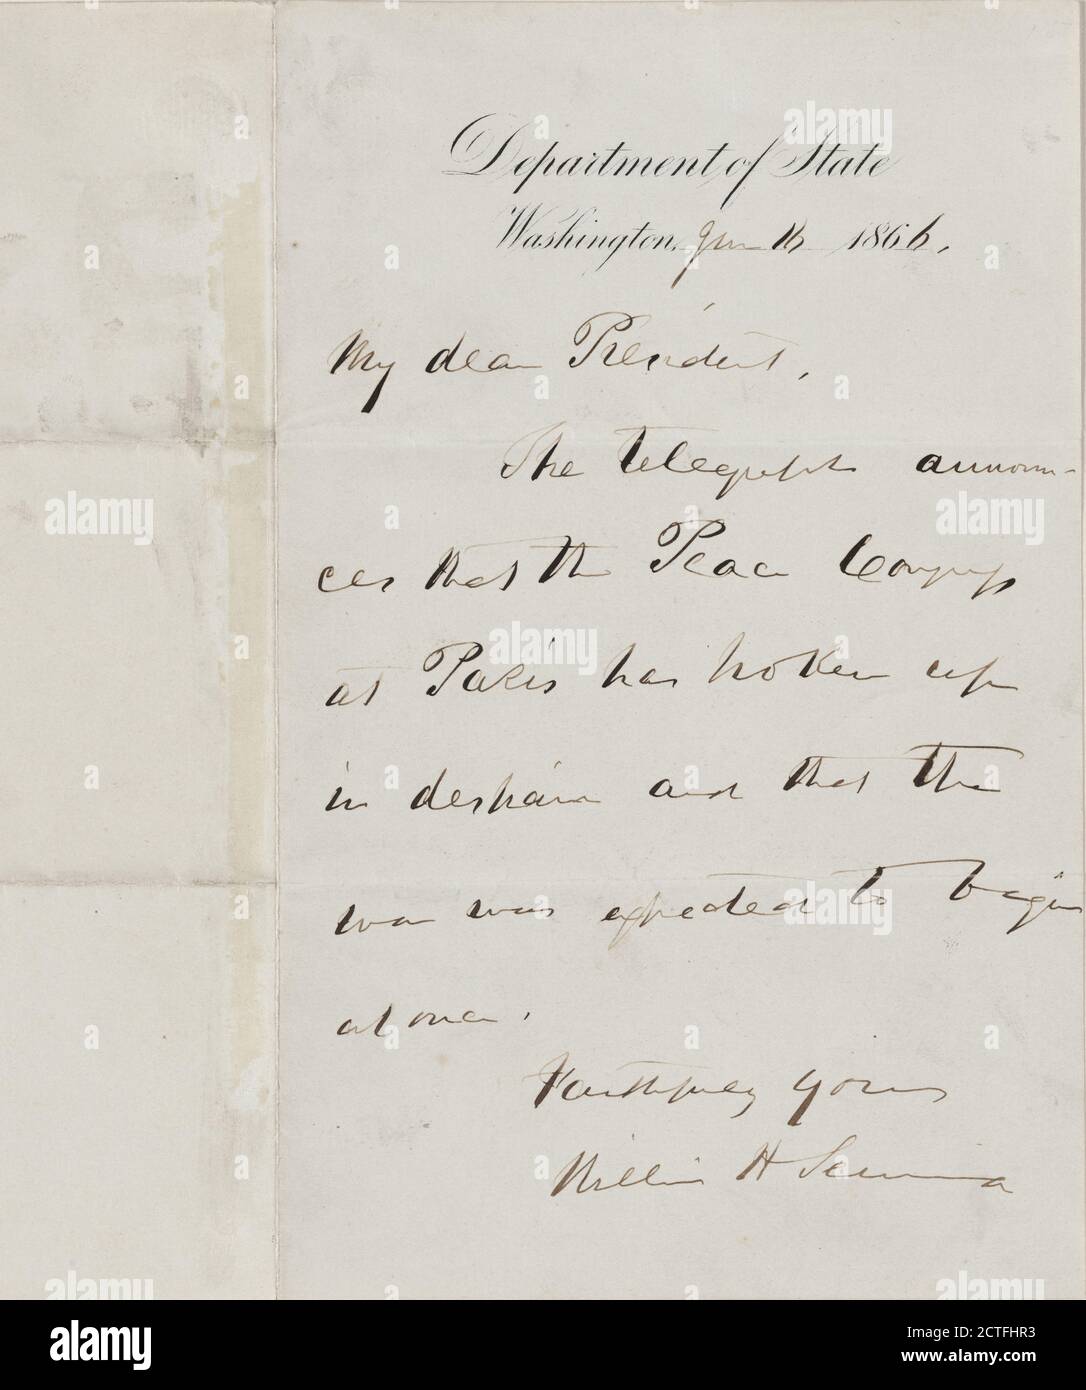 Department of State
Washington, Jun 16 1866.
My dear President,
The telegraph announ-
ces that the Peace Congress
at Paris has broken up
in despair and that the
war was expected to begin
at once.
Faithfully yours
William H Seward
alamy
Image ID: 2CTFHR3
www.alamy.com